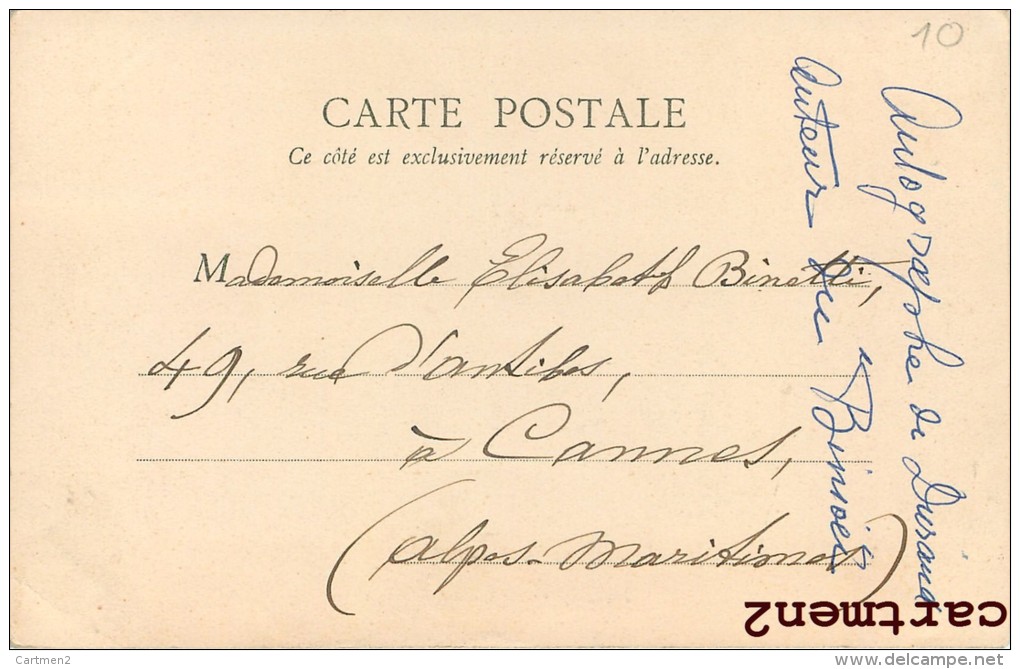 10
CARTE POSTALE
Ce côté est exclusivement réservé à l'adresse.
Mademoiselle Elisabeth Binetti,
49, rue d'Antibes,
à Cannes,
(Alpes-Maritimes)
Autographe de Durand
Auteur du "Biniou"
cartmen2
Cartmen2
www.delcampe.net